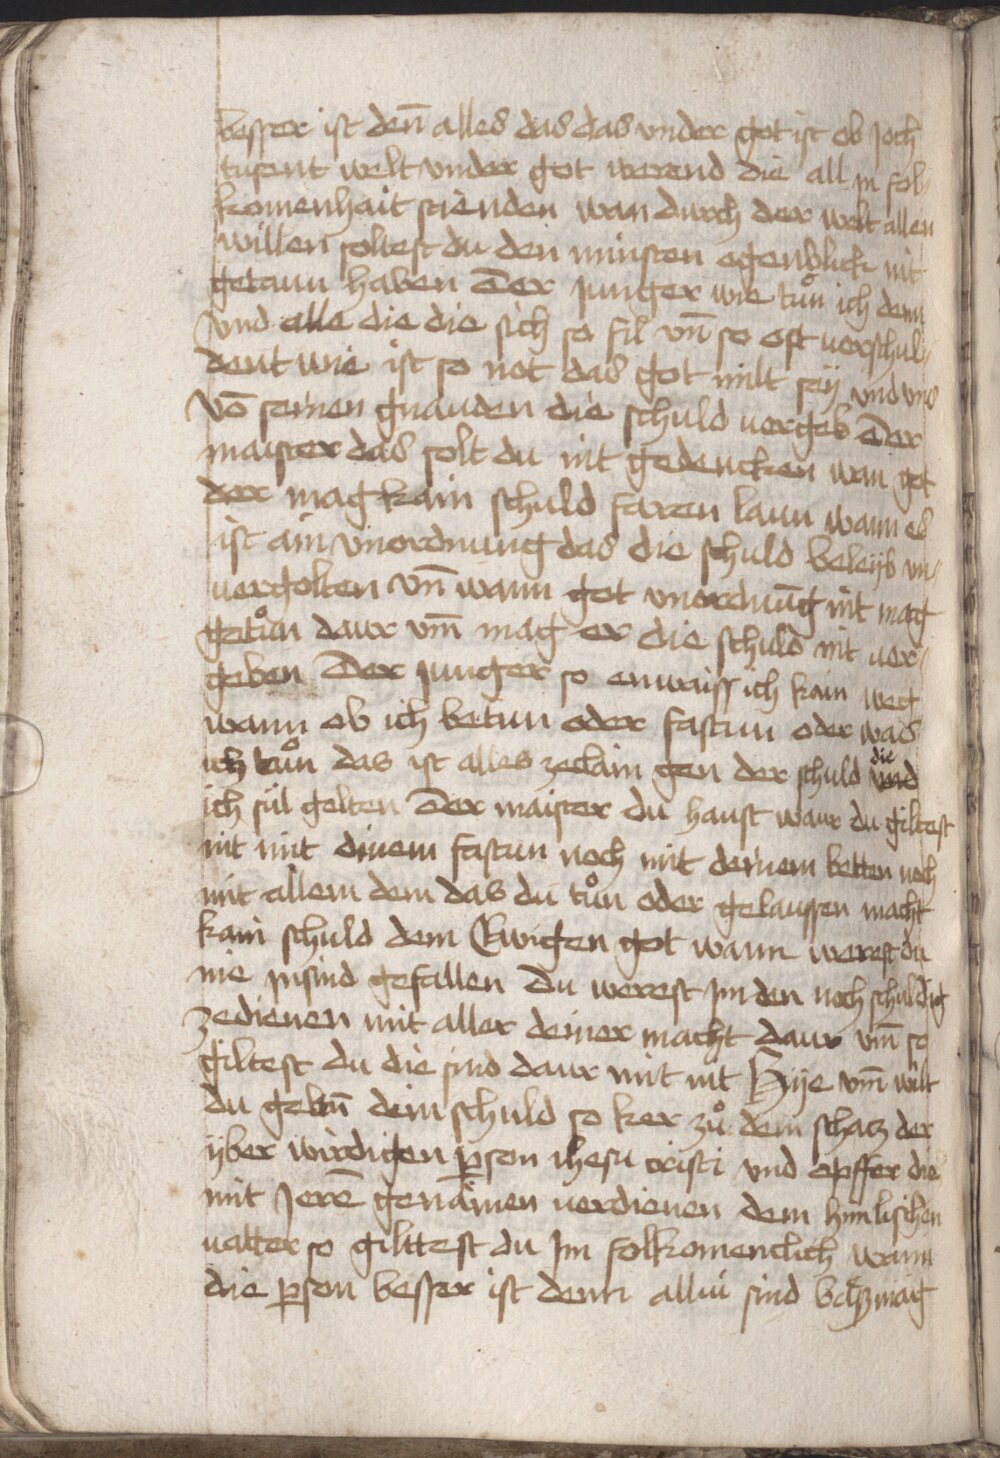 besser ist den̄ alles das das vnder got ist ob joch
tusent welt vnder got werend die all jn fol-
komenhait stienden wan durch der welt allen
willen soltest du den minsten ogenblick nit
getaun haben Der junger wie tůn ich denn
vnd alle die die sich so fil vn̄ so oft verschul-
dent wie ist so not das got milt sÿ vnd vns
vō seinen gnauden die schuld vergeb Der
maister das solt du nit gedencken wan got
der mag kain schuld faren laun wann es
ist ain vnordnung das die schuld beleÿb vn-
uergolten vn̄ wann got vnordnūg nit mag
getůn daur vm̄ mag er die schuld nit uer-
geben Der junger so enwaiss ich kain weg
wann ob ich betun oder fastun oder was
ich tůn das ist alles zeclain gen der schuld die
ich sül gelten Der maister du haust waur du giltest
nit mit dinem fastun noch mit deinem betten noch
mit allem dem das du tůn oder gelaussen macht
kain schuld dem Ewigen got wann werest du
nie jn sind gefallen Du werest jm den noch schuldig
zedienen mit aller deiner macht daur vm̄ so
giltest du die sind daur mit nit Hÿe vm̄ wilt
du geltn̄ dein schuld so ker zů dem schatz der
ÿber wirdigen pson ihesu cristi vnd opffer die
mit Jerē genämen uerdienen dem himlischen
vatter so gilttest du Im folkomenclich wann
die pson besser ist denn alliu sind böß mag